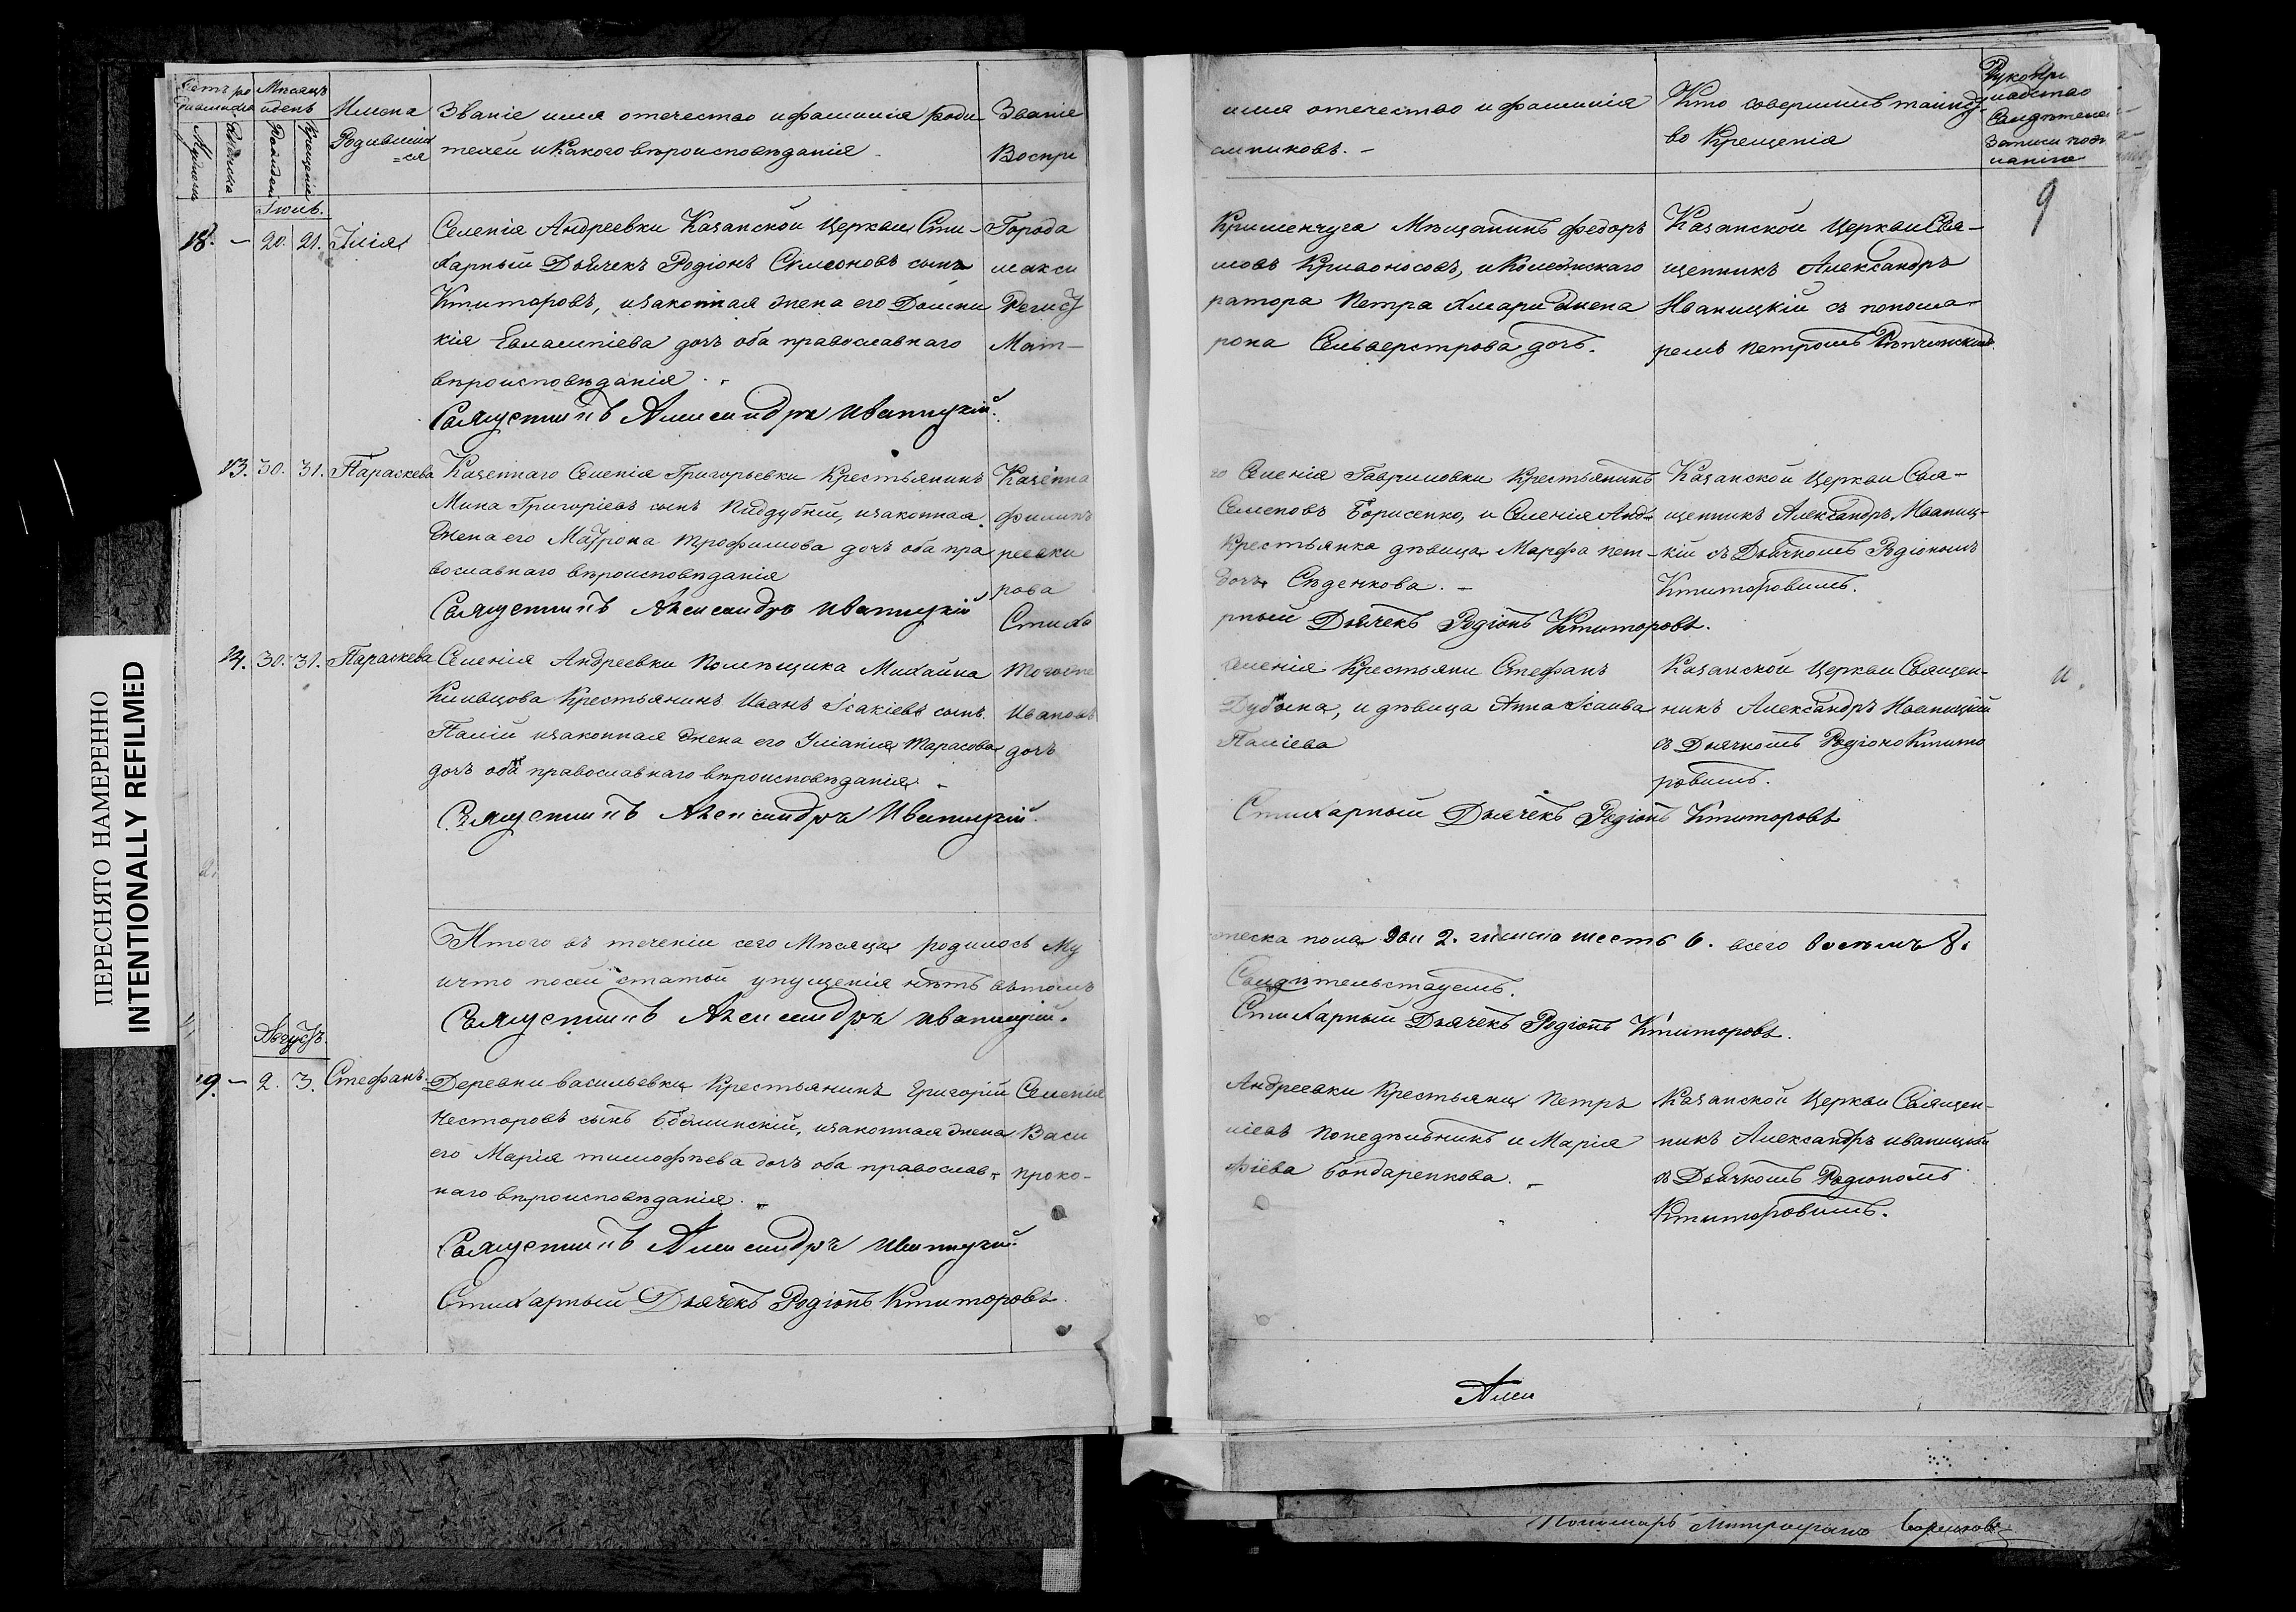 Мѣсяцъ
и день
Имена
Родившихся
Званіе имя отечество и фамилія роди
телей и какого вѣроисповѣданія
Званіе
Воспрі
Іюль.
18. – 20. 21. Илія
Селенія Андреевки Казанской Церкви Сти-
харный Дьячекъ Родіонъ Симеоновъ сынъ
Ктиторовъ, и законная жена его Домни
кія Евлампіева дочь оба православнаго
вѣроисповѣданія.
Города
макси
Регист
Мат-
Священникъ Александръ Иваницкій.
13. 30. 31. Параскева
Казеннаго Селенія Григорьевки Крестьянинъ
Мина Григоріевъ сынъ Піддубній, и законная
жена его Матрона Трофимова дочь оба пра
вославнаго вѣроисповѣданія
Казенна
филипъ
реевки
рова
Стиха
Священникъ Александръ Иваницкій
14. 30. 31. Параскева
Селенія Андреевки Помѣщика Михаила
Кильцова Крестьянинъ Иванъ Ісакіевъ сынъ
Палій и законная жена его Уліанія Тарасова
дочь оба православнаго вѣроисповѣданія.
Тогоже
Ивановъ
дочь
Священникъ Александръ Иваницкій.
Итого въ теченіи сего Мѣсяца родилось Му
и что посей статьи упущенія нѣтъ въ томъ
Священникъ Александръ Иваницкій.
Августъ.
19. – 2. 3. Стефанъ
Деревни Васильевки Крестьянинъ Григорій
Несторовъ сынъ, и законная жена
его Марія Тимофѣева дочь оба православ-
наго вѣроисповѣданія.
Селенія
Васи
Проко-
Священникъ Александръ Иваницкій.
Стихарный Дьячекъ Родіонъ Ктиторовъ.
имя отечество и фамилія
емниковъ. –
Кто совершилъ таинст
во Крещенія
Рукопри
кладство
Свидѣтелей
Записи
9
Крименчуга Мѣщанинъ Федоръ
мовъ Кривоносовъ, и Колежскаго
ратора Петра Хмари жена
рона Сильверстрова дочь.
Казанской Церкви Свя-
щенникъ Александръ
Иваницкій съ понома-
ремъ Петромъ
го Селенія Гавриловки Крестьянинъ
Семеновъ Борисенко, и Селенія Анд-
Крестьянка дѣвица Марфа Пет-
дочь Сѣденкова. –
рный Дьячекъ Родіонъ Ктиторовъ.
Казанской Церкви Свя-
щенникъ Александръ Иваниц-
кій съ Дьячкомъ Родіономъ
Ктиторовимъ.
селенія Крестьяни Стефанъ
Дубина, и дѣвица Анна Ісаива
Паліева
Казанской Церкви Священ-
никъ Александръ Иваницкій
съ Дьячкомъ Родіоно Ктито
ровимъ.
Стихарный Дьячекъ Родіонъ Ктиторовъ
жеска пола два 2. женска шесть 6. всего восемъ 8.
Свидѣтельствуемъ.
Стихарный Дьячекъ Родіонъ Ктиторовъ.
Андреевки Крестьяни Петръ
ліевъ Понедѣльникъ и Марія
фіева Бондаренкова. –
Казанской Церкви Священ-
никъ Александръ Иваницкій
съ Дьячкомъ Родіономъ
Ктиторовимъ.
Але
Пономарь Митрофанъ
ПЕРЕСНЯТО НАМЕРЕННО
INTENTIONALLY REFILMED